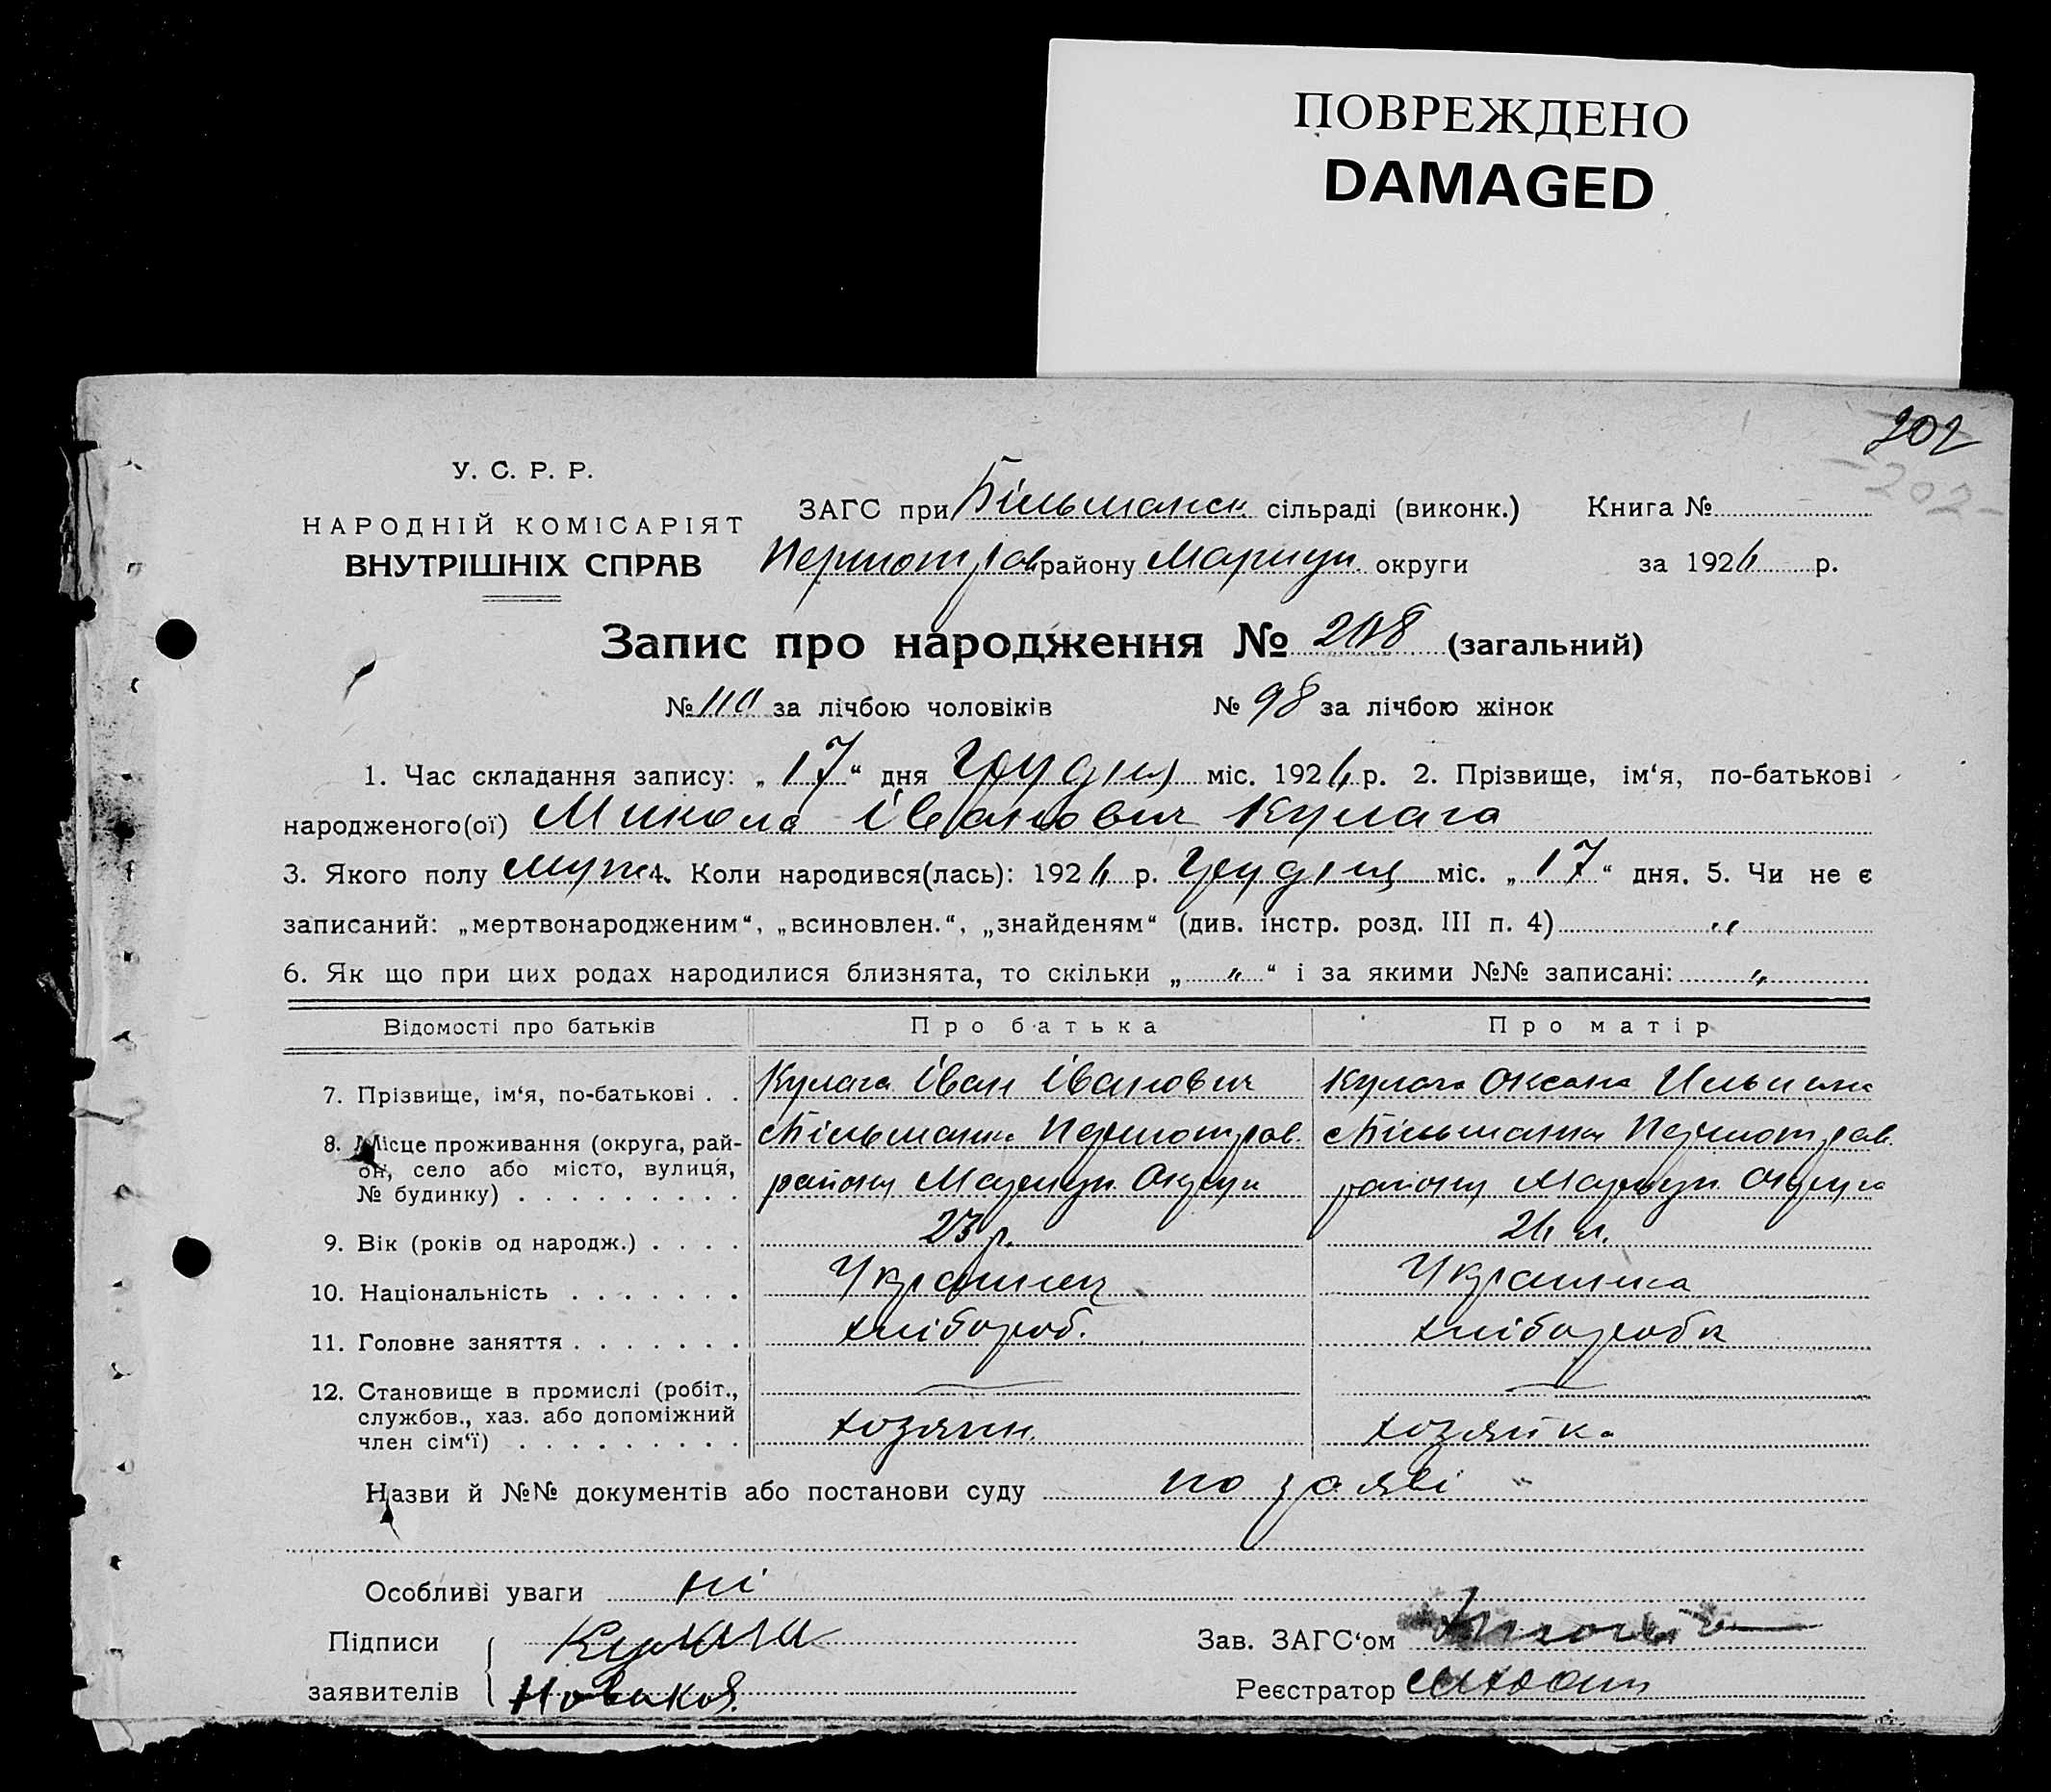 ПОВРЕЖДЕНО
DAMAGED
202
202
У. С. Р. Р.
НАРОДНІЙ КОМІСАРІЯТ
ВНУТРІШНІХ СПРАВ
ЗАГС при Більманск сільраді (виконк.) Книга №
Першотрав району Маріуп. округи за 1924 р.
Запис про народження № 208 (загальний)
№ 110 за лічбою чоловіків № 98 за лічбою жінок
1. Час складання запису: „17“ дня Грудня міс. 1924 р. 2. Прізвище, ім‘я, по-батькові
народженого(ої) Микола Іванович Кулага
3. Якого полу муж 4. Коли народився(лась): 1924 р. Грудня міс. „17“ дня. 5. Чи не є
записаний: „мертвонародженим“, „всиновлен.“, „знайденям“ (див. інстр. розд. III п. 4) „
6. Як що при цих родах народилися близнята, то скільки „ „ “ і за якими №№ записані: „
Відомості про батьків Про батька Про матір
7. Прізвище, ім‘я, по-батькові . . Кулага Іван Іванович Кулага Оксана Ильинна
8. Місце проживання (округа, рай- с Більманка Першотрав. с Більманка Першотрав.
он, село або місто, вулиця, району Маріуп. Округи району Маріуп. Округи
№ будинку)
9. Вік (років од народж.) . . . . 23 р. 24 р.
10. Національність Украинец Украинка
11. Головне заняття хлібороб. хлібаробка
12. Становище в промислі (робіт.,
службов., хаз. або допоміжний хозяин. хозяйка
член сім‘ї)
Назви й №№ документів або постанови суду по заяві „
Особливі уваги ні
Підписи Кулага Зав. ЗАГС‘ом
заявителів Новаков. Реєстратор